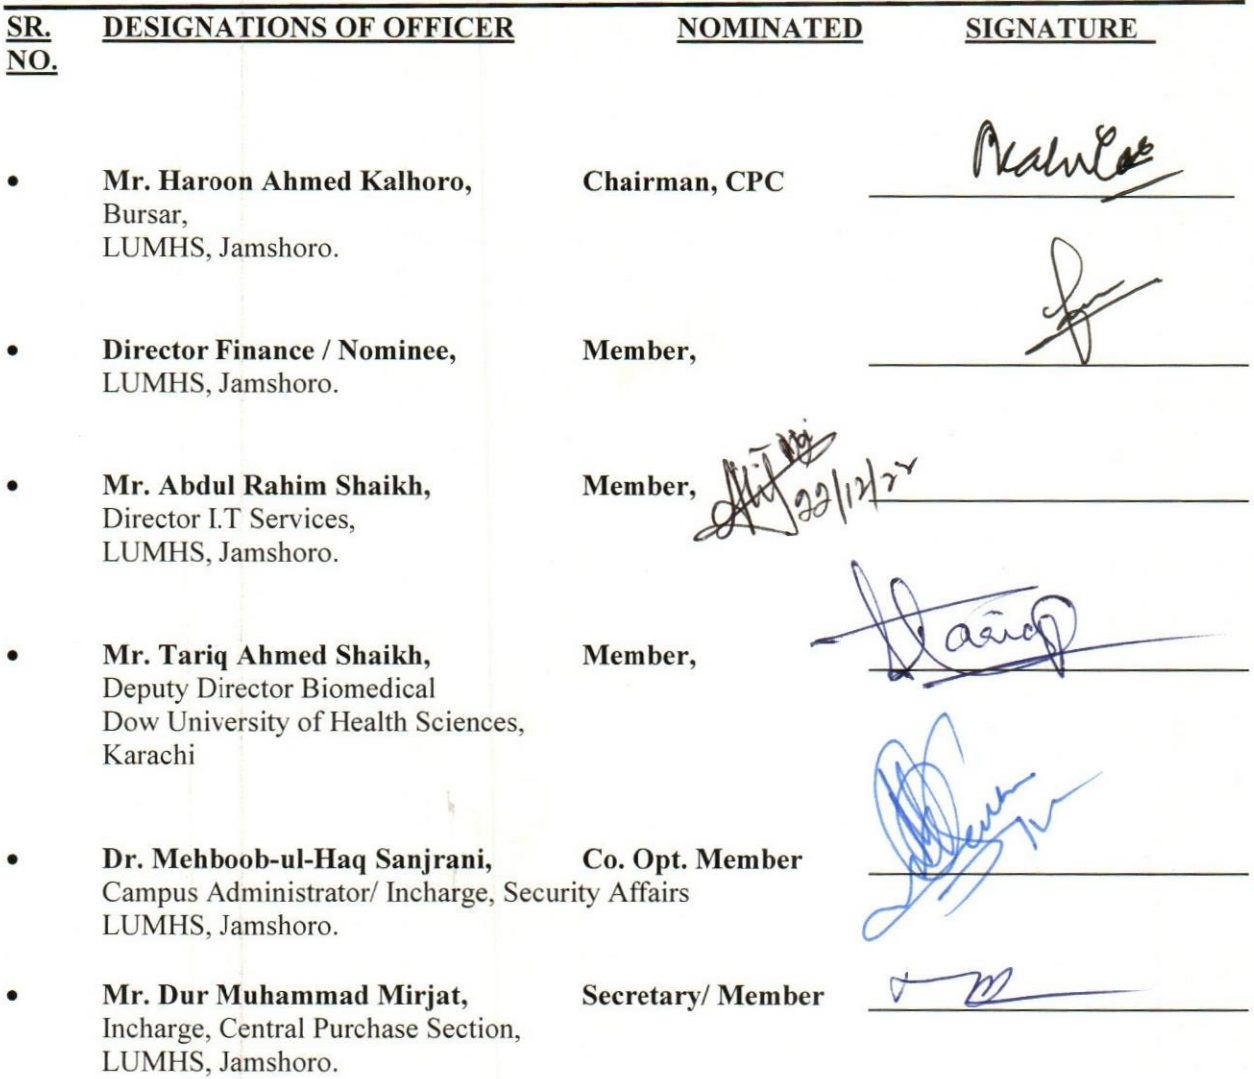 SR. NO. DESIGNATIONS OF OFFICER NOMINATED SIGNATURE
• Mr. Haroon Ahmed Kalhoro, Chairman, CPC
Bursar,
LUMHS, Jamshoro.
• Director Finance / Nominee, Member,
LUMHS, Jamshoro.
• Mr. Abdul Rahim Shaikh, Member, 22/12/22
Director I.T Services,
LUMHS, Jamshoro.
• Mr. Tariq Ahmed Shaikh, Member,
Deputy Director Biomedical
Dow University of Health Sciences,
Karachi
• Dr. Mehboob-ul-Haq Sanjrani, Co. Opt. Member
Campus Administrator/ Incharge, Security Affairs
LUMHS, Jamshoro.
• Mr. Dur Muhammad Mirjat, Secretary/ Member
Incharge, Central Purchase Section,
LUMHS, Jamshoro.